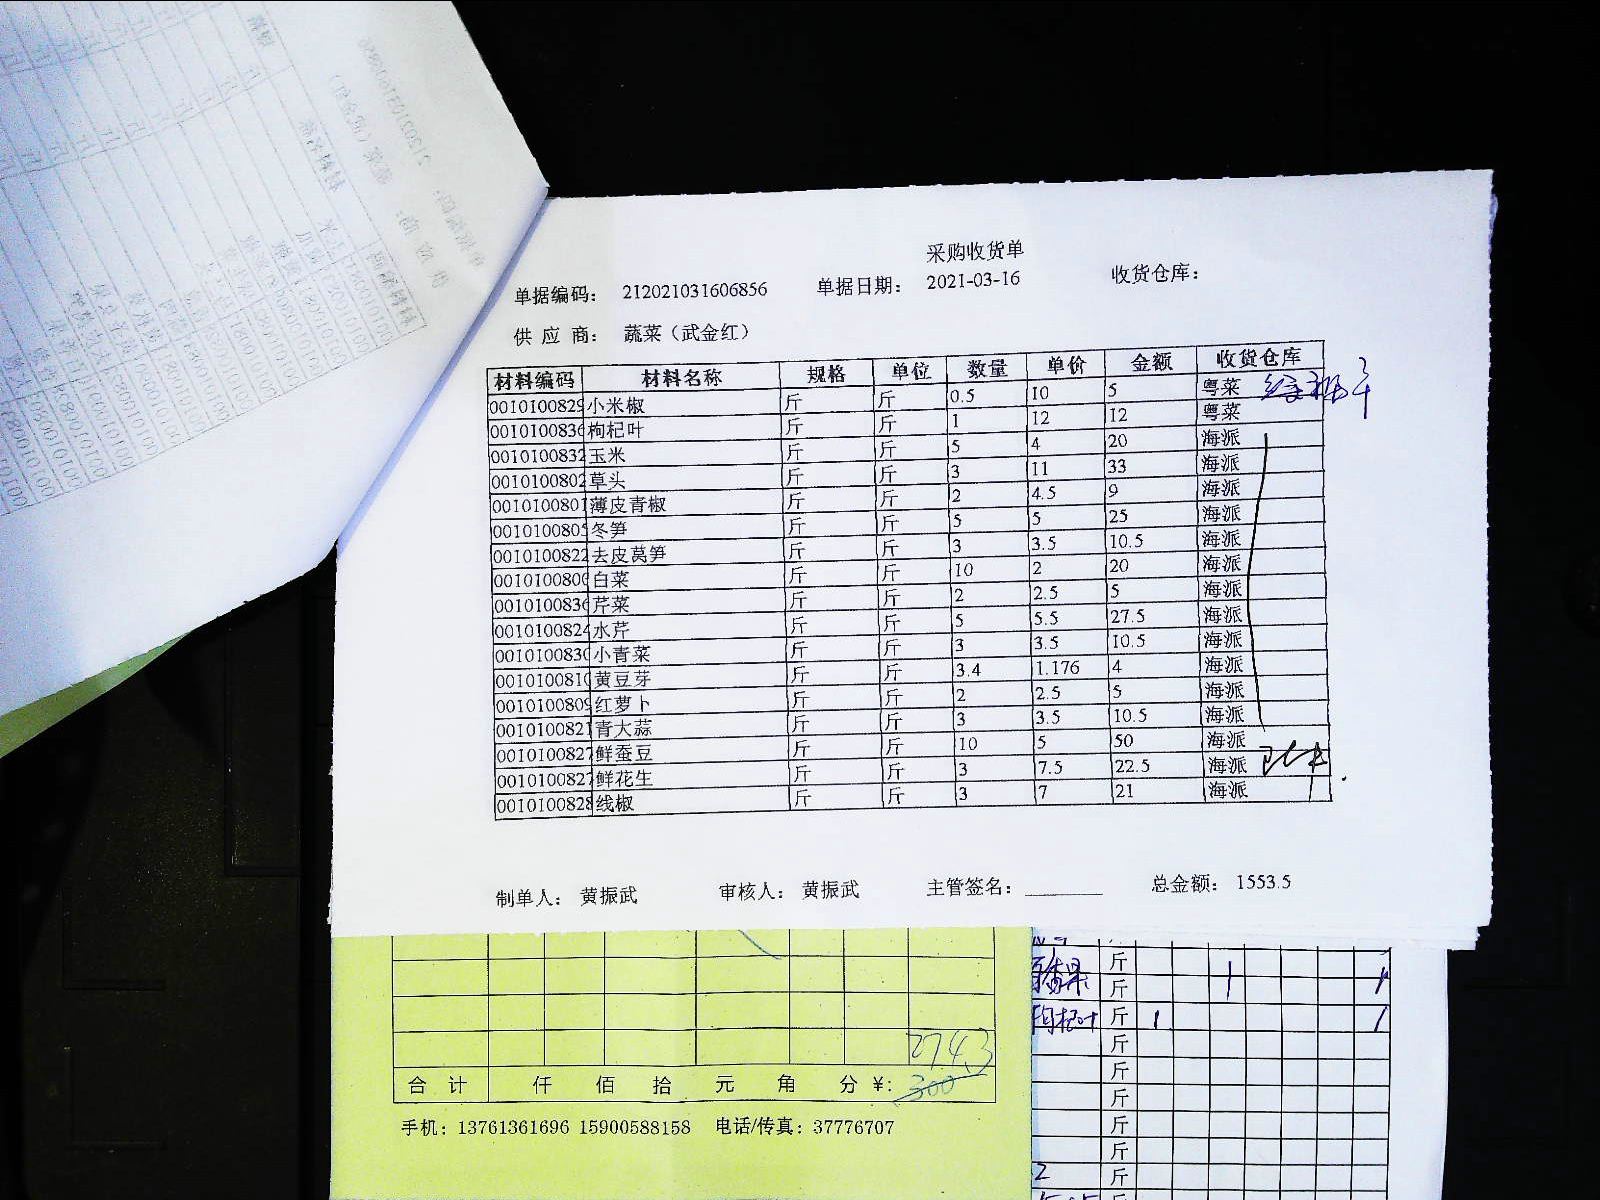 采购收货单
单据编码： 212021031606856 单据日期： 2021-03-16 收货仓库：
供 应 商： 蔬菜（武金红）
材料编码 材料名称 规格 单位 数量 单价 金额 收货仓库
0010100829 小米椒 斤 斤 0.5 10 5 粤菜
0010100836 枸杞叶 斤 斤 1 12 12 粤菜
0010100832 玉米 斤 斤 5 4 20 海派
0010100802 草头 斤 斤 3 11 33 海派
0010100801 薄皮青椒 斤 斤 2 4.5 9 海派
0010100805 冬笋 斤 斤 5 5 25 海派
0010100822 去皮莴笋 斤 斤 3 3.5 10.5 海派
0010100800 白菜 斤 斤 10 2 20 海派
0010100836 芹菜 斤 斤 2 2.5 5 海派
0010100824 水芹 斤 斤 5 5.5 27.5 海派
0010100830 小青菜 斤 斤 3 3.5 10.5 海派
0010100810 黄豆芽 斤 斤 3.4 1.176 4 海派
0010100809 红萝卜 斤 斤 2 2.5 5 海派
0010100821 青大蒜 斤 斤 3 3.5 10.5 海派
0010100827 鲜蚕豆 斤 斤 10 5 50 海派
0010100827 鲜花生 斤 斤 3 7.5 22.5 海派
0010100828 线椒 斤 斤 3 7 21 海派
制单人： 黄振武 审核人： 黄振武 主管签名： 总金额： 1553.5
274.3
合 计 仟 佰 拾 元 角 分 ¥: 300
手机：13761361696 15900588158 电话/传真：37776707
斤
斤 1 1
枸杞叶 斤 1 1
斤
斤
斤
斤
斤
斤